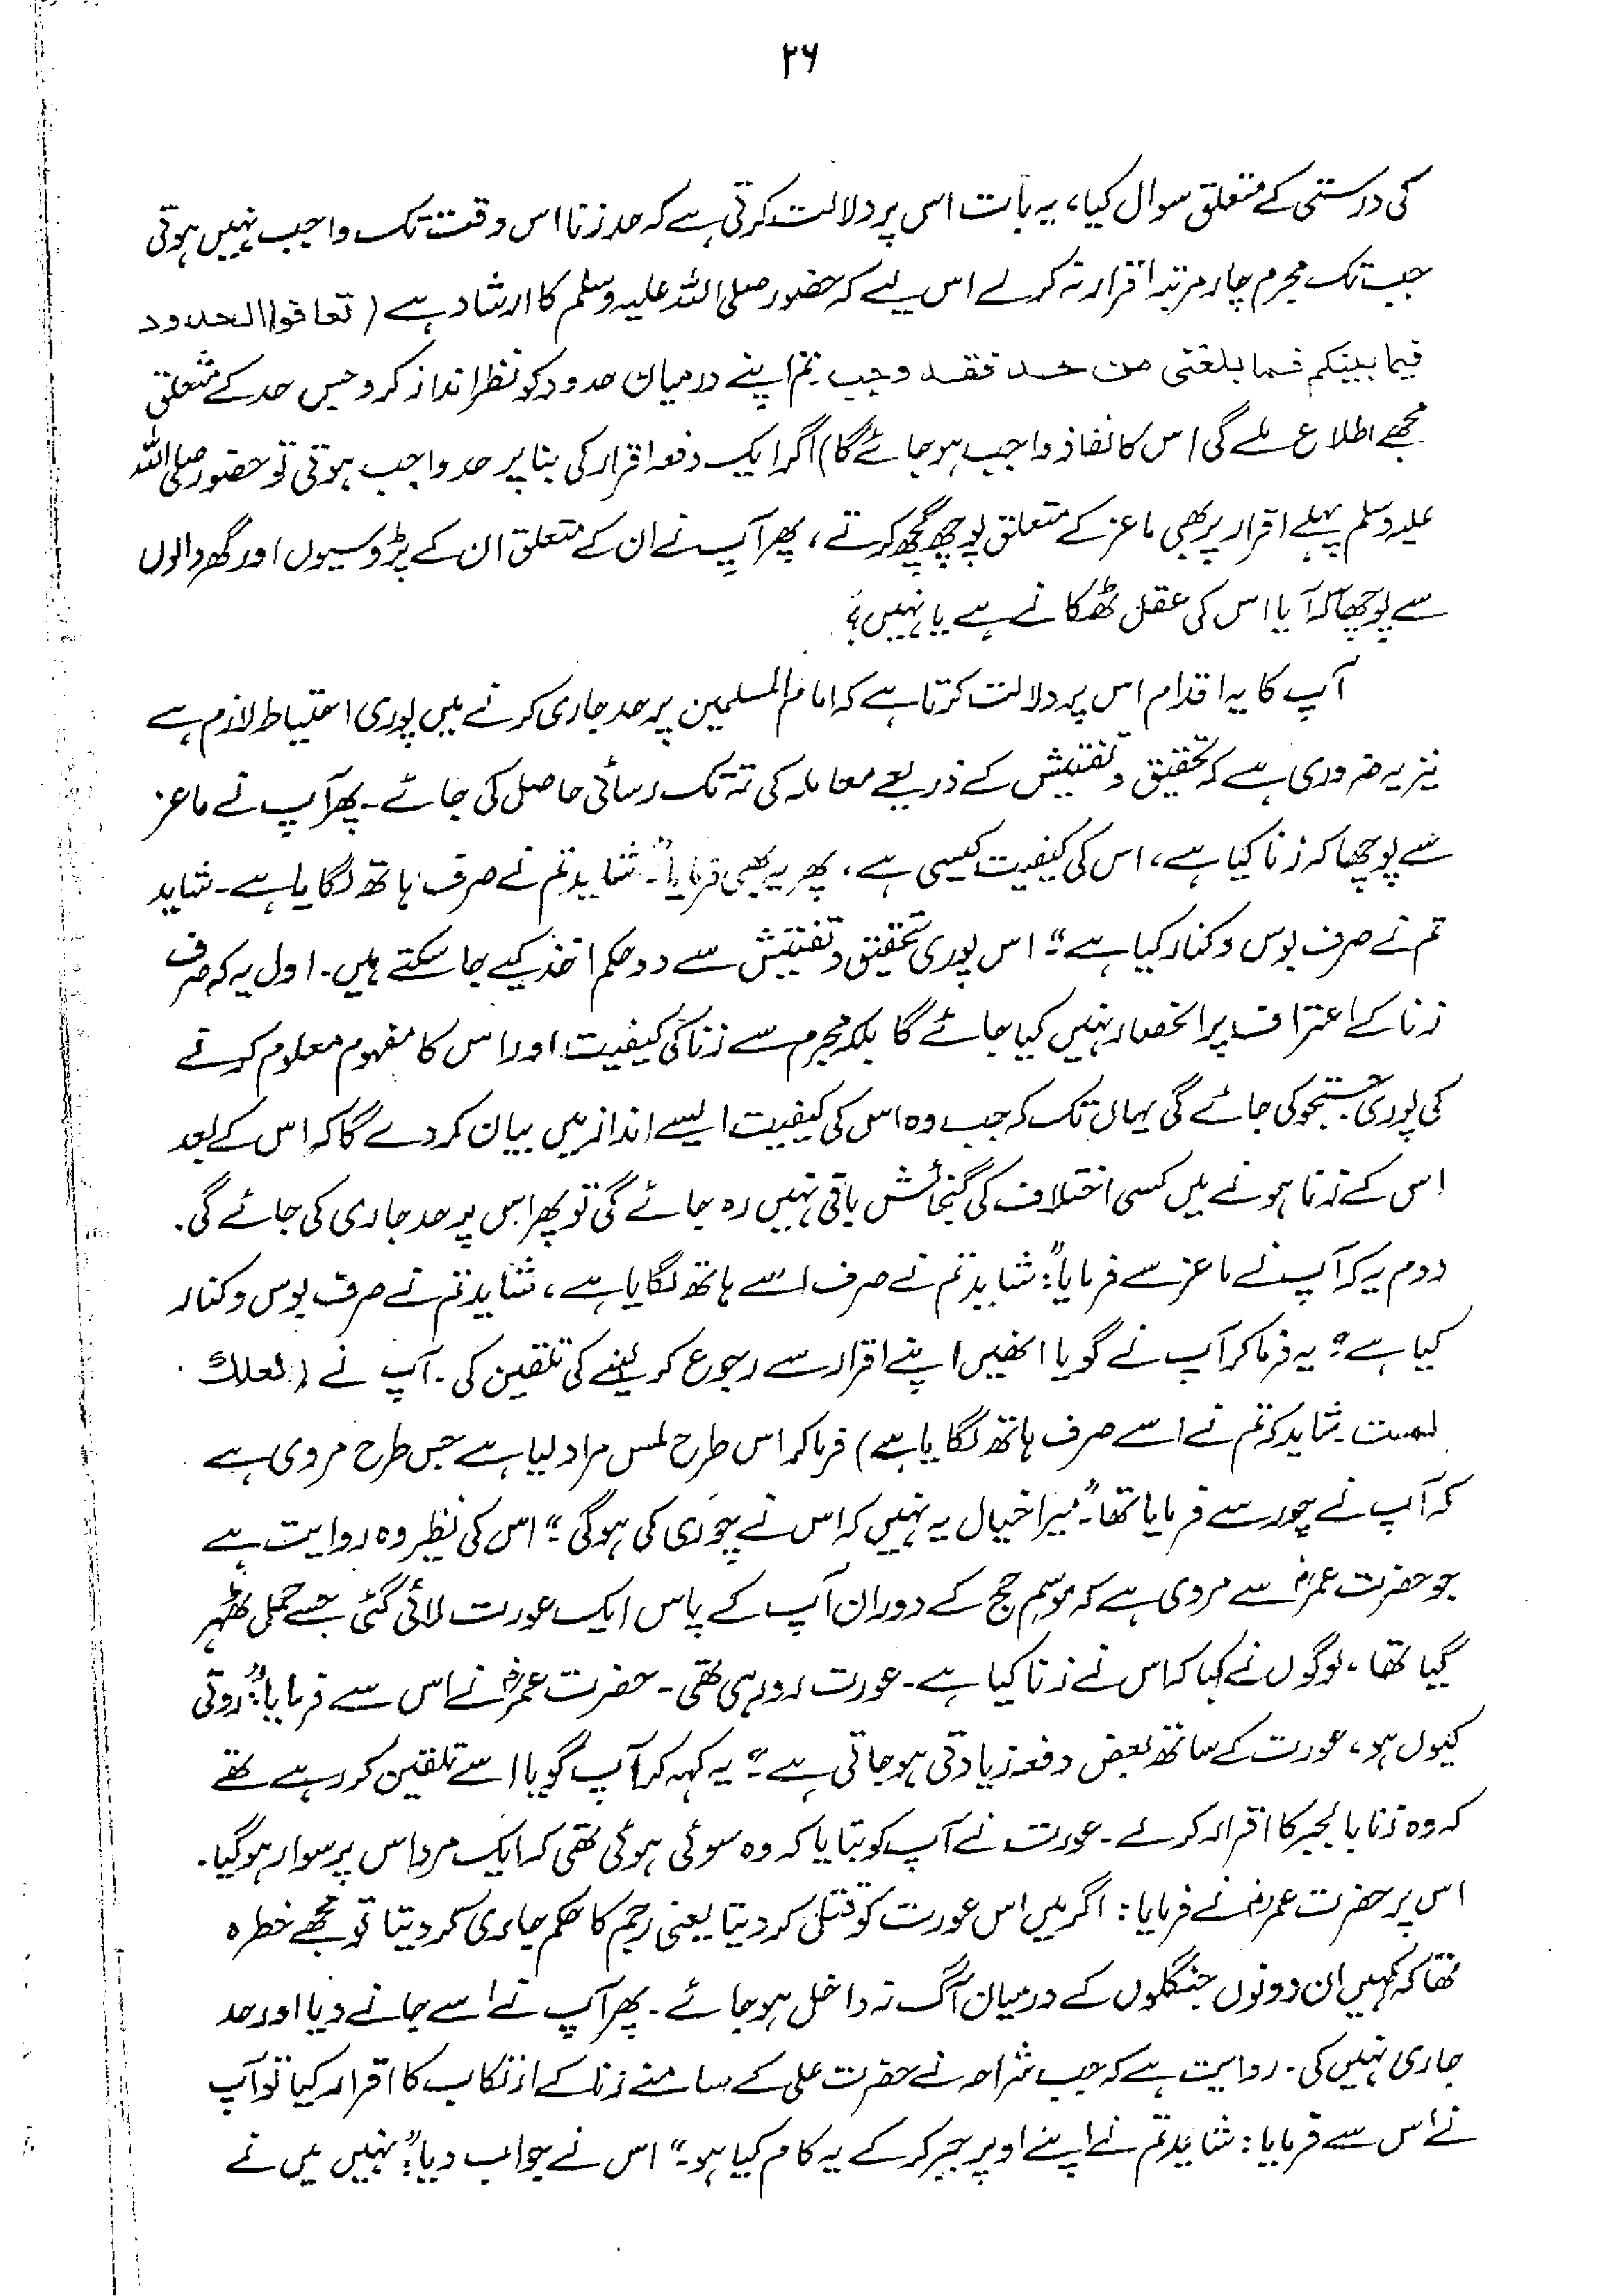 ۲۶
کی درستی کے متعلق سوال کیا، یہ بات اس پر دلالت کرتی ہے کہ حد زنا اس وقت تک واجب نہیں ہوتی
جب تک مجرم چار مرتبہ اقرار نہ کرلے اس لیے کہ حضور صلی اللہ علیہ وسلم کا ارشاد ہے (تعافوا الحدود
فیما بینکم فما بلغنی من حد فقد وجب۔ تم اپنے درمیان حدود کو نظر انداز کرو جس حد کے متعلق
مجھے اطلاع ملے گی اس کا نفاذ واجب ہو جائے گا) اگر ایک دفعہ اقرار کی بنا پر حد واجب ہوتی تو حضور صلی اللہ
علیہ وسلم پہلے اقرار پر بھی ماعز کے متعلق پوچھ گچھ کرتے، پھر آپ نے ان کے متعلق ان کے پڑوسیوں اور گھر والوں
سے پوچھا کہ آیا اس کی عقل ٹھکانے ہے یا نہیں؟
آپ کا یہ اقدام اس پر دلالت کرتا ہے کہ امام المسلمین پر حد جاری کرنے میں پوری احتیاط لازم ہے
نیز یہ ضروری ہے کہ تحقیق و تفتیش کے ذریعے معاملہ کی تہ تک رسائی حاصل کی جائے۔ پھر آپ نے ماعز
سے پوچھا کہ زنا کیا ہے، اس کی کیفیت کیسی ہے، پھر یہ بھی فرمایا "شاید تم نے صرف ہاتھ لگایا ہے۔ شاید
تم نے صرف بوس و کنار کیا ہے" اس پوری تحقیق و تفتیش سے دو حکم اخذ کیے جا سکتے ہیں۔ اول یہ کہ صرف
زنا کے اعتراف پر انحصار نہیں کیا جائے گا بلکہ مجرم سے زنا کی کیفیت اور اس کا مفہوم معلوم کرنے
کی پوری جستجو کی جائے گی یہاں تک کہ جب وہ اس کی کیفیت ایسے انداز میں بیان کر دے گا کہ اس کے بعد
اس کے زنا ہونے میں کسی اختلاف کی گنجائش باقی نہیں رہ جائے گی تو پھر اس پر حد جاری کی جائے گی۔
دوم یہ کہ آپ نے ماعز سے فرمایا: "شاید تم نے صرف اسے ہاتھ لگایا ہے، شاید تم نے صرف بوس و کنار
کیا ہے" یہ فرما کر آپ نے گویا انھیں اپنے اقرار سے رجوع کر لینے کی تلقین کی۔ آپ نے (لعلك
لمست۔ شاید کہ تم نے اسے صرف ہاتھ لگایا ہے) فرما کر اس طرح لمس مراد لیا ہے جس طرح مروی ہے
کہ آپ نے چور سے فرمایا تھا۔ "میرا خیال یہ نہیں کہ اس نے چوری کی ہوگی" اس کی نظیر وہ روایت ہے
جو حضرت عمرؓ سے مروی ہے کہ موسم حج کے دوران آپ کے پاس ایک عورت لائی گئی جسے حمل ٹھہر
گیا تھا، لوگوں نے کہا کہ اس نے زنا کیا ہے۔ عورت رو رہی تھی۔ حضرت عمرؓ نے اس سے فرمایا: "روتی
کیوں ہو، عورت کے ساتھ بعض دفعہ زیادتی ہو جاتی ہے" یہ کہہ کر آپ گویا اسے تلقین کر رہے تھے
کہ وہ زنا بالجبر کا اقرار کرلے۔ عورت نے آپ کو بتایا کہ وہ سوئی ہوئی تھی کہ ایک مرد اس پر سوار ہو گیا۔
اس پر حضرت عمرؓ نے فرمایا: اگر میں اس عورت کو قتل کر دیتا یعنی رجم کا حکم جاری کر دیتا تو مجھے خطرہ
تھا کہ کہیں ان دونوں جنگلوں کے درمیان آگ نہ داخل ہو جائے۔ پھر آپ نے اسے جانے دیا اور حد
جاری نہیں کی۔ روایت ہے کہ جب شراحہ نے حضرت علی کے سامنے زنا کے ارتکاب کا اقرار کیا تو آپ
نے اس سے فرمایا: شاید تم نے اپنے اوپر جبر کر کے یہ کام کیا ہو۔" اس نے جواب دیا: "نہیں میں نے